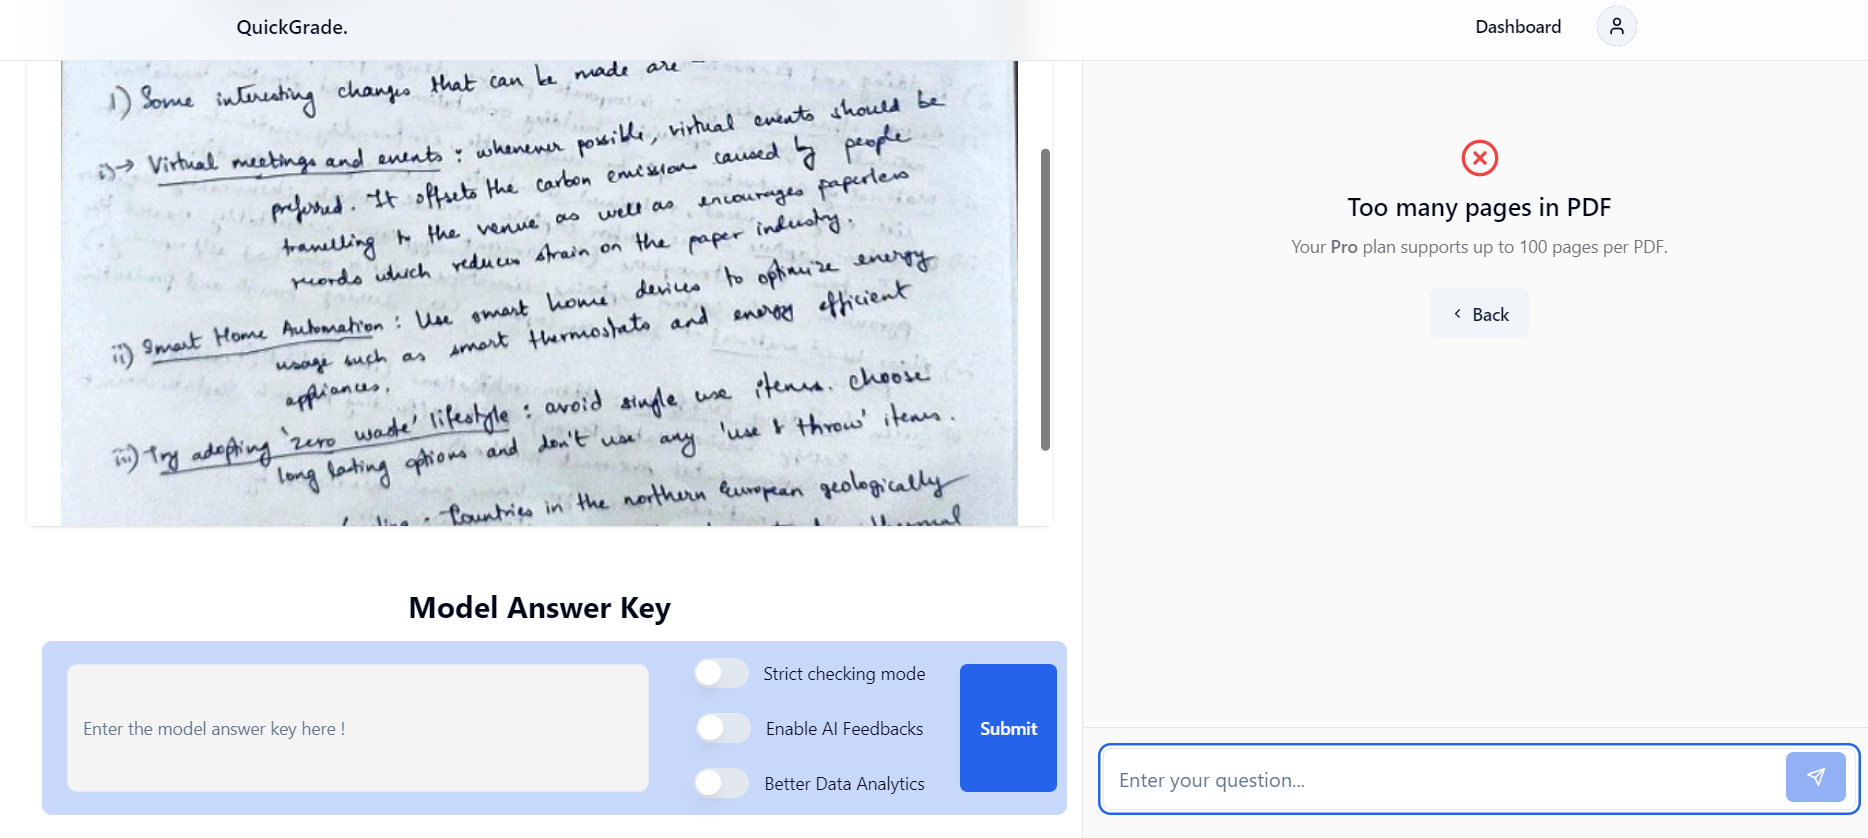 QuickGrade.
Dashboard
1) Some interesting changes that can be made are -
i) → Virtual meetings and events : whenever possible, virtual events should be
preferred. It offsets the carbon emission caused by people
travelling to the venue, as well as encourages paperless
records which reduces strain on the paper industry.
ii) Smart Home Automation : Use smart home devices to optimize energy
usage such as smart thermostats and energy efficient
appliances.
iii) Try adopting 'zero waste' lifestyle : avoid single use items. Choose
long lasting options and don't use any 'use & throw' items.
Countries in the northern European geologically
thermal
Model Answer Key
Enter the model answer key here !
Strict checking mode
Enable AI Feedbacks
Better Data Analytics
Submit
Too many pages in PDF
Your Pro plan supports up to 100 pages per PDF.
Back
Enter your question...